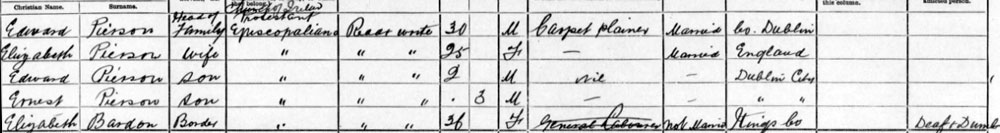 Christian Name. Surname. this column.
Church of Ireland
Head of Protestant
Edward Pierson Family Episcopalians Read write 30 M Carpet plainer Married Co. Dublin
Elizabeth Pierson Wife " " " 25 F — Married England
Edward Pierson Son " " " 2 M nil — Dublin City
Ernest Pierson Son " " " . 3 M — — " "
Elizabeth Bardon Border " " " 36 F General Labourer Not Married Kings Co Deaf & Dumb